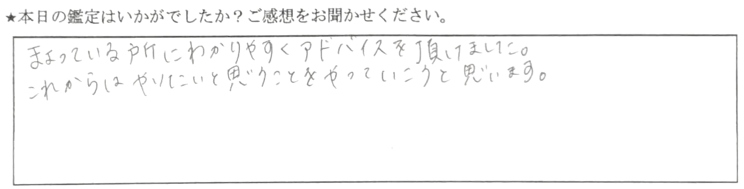 ★本日の鑑定はいかがでしたか？ご感想をお聞かせください。
まよっている所にわかりやすくアドバイスを頂けました。
これからはやりたいと思うことをやっていこうと思います。